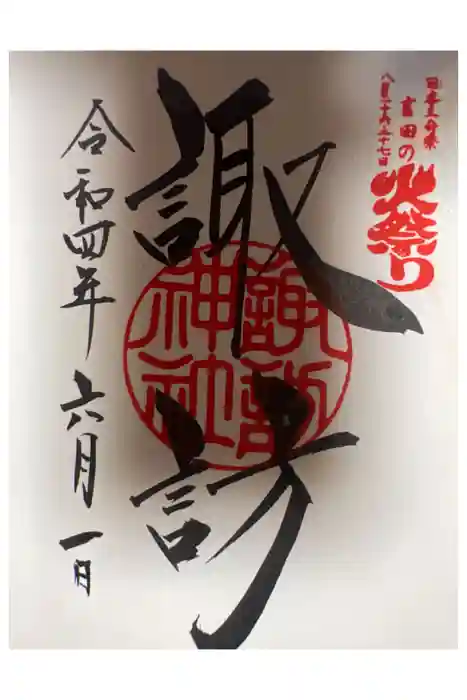 日本三奇祭
吉田の
火祭り
八月二十六二十七日
諏訪
諏訪
神社
令和四年六月一日